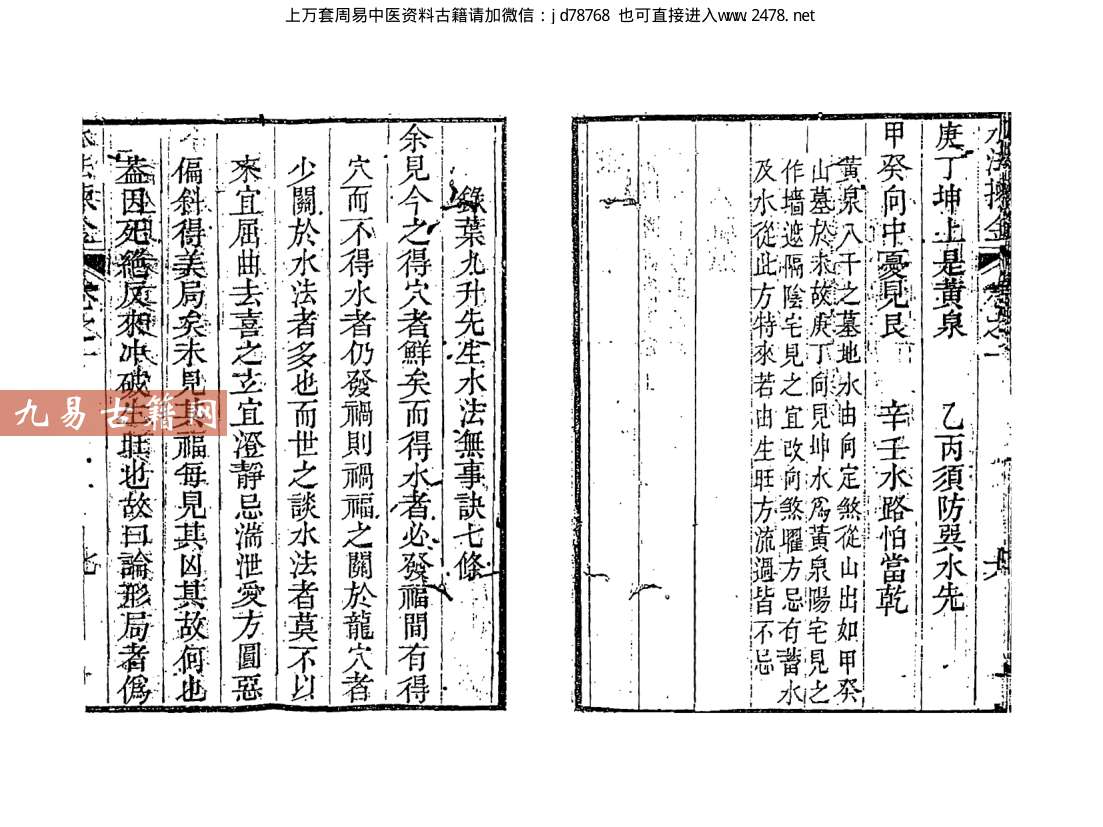 上万套周易中医资料古籍请加微信：jd78768 也可直接进入www.2478.net
庚丁坤上是黃泉 乙丙須防巽水先
甲癸向中憂見艮 辛壬水路怕當乾
黃泉八干之墓地水由向定煞從山出如甲癸
山墓於未故庚丁向見坤水爲黃泉陽宅見之
作墻遮隔陰宅見之宜改向煞曜方忌有蓄水
及水從此方特來若由生旺方流過皆不忌
錄葉九升先生水法無事訣七條
余見今之得穴者鮮矣而得水者必發福間有得
穴而不得水者仍發禍則禍福之關於龍穴者
少關於水法者多也而世之談水法者莫不以
來宜屈曲去喜之玄宜澄靜忌湍泄愛方圓惡
偏斜得美局矣未見其福每見其凶其故何也
蓋因死絕反來冲破生旺也故曰論形局者僞
七
九易古籍网